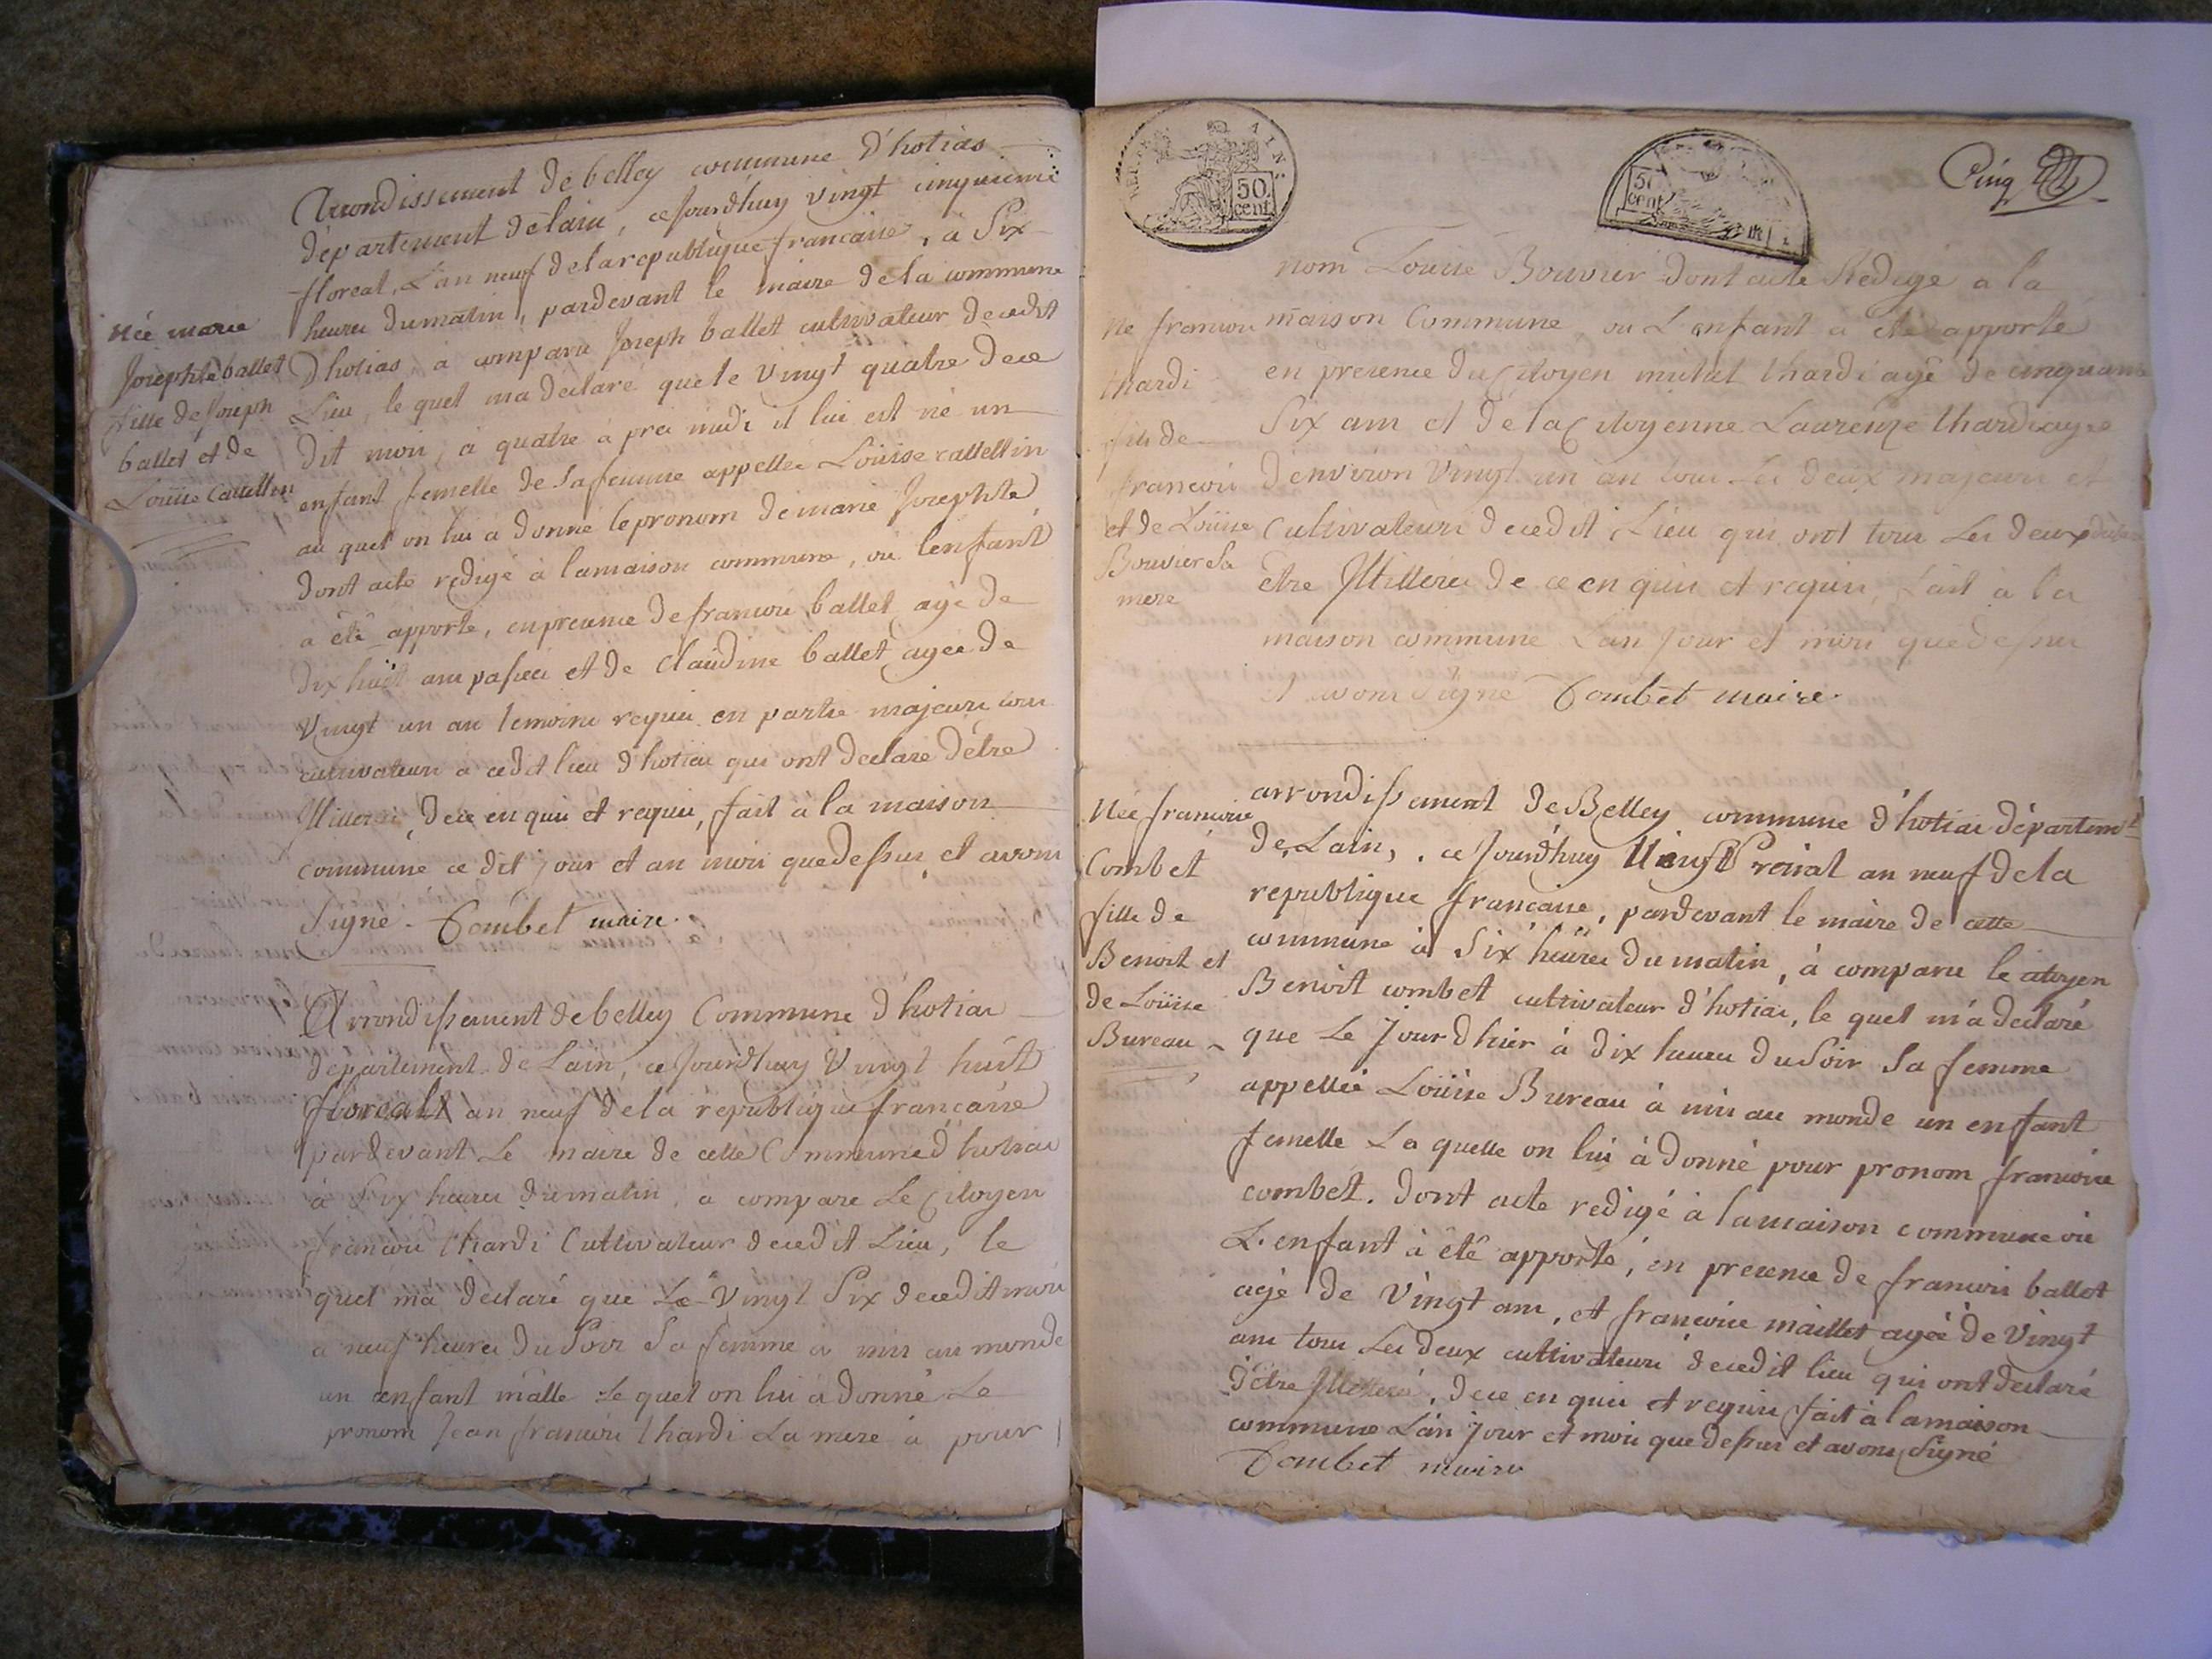 Arrondissement de belley commune d'hotias
département de lain, ce jourd'huy vingt cinquieme
floreal, L'an neuf de la republique francaise, à Six
heures du matin, pardevant le maire de la commune
Dhotias, à comparu Joseph ballet cultivateur de cedit
Lieu, le quel ma declaré que le vingt quatre de ce
dit mois, à quatre à pres midi il lui est né un
enfant femelle de Sa femme appellée Loüise cattellin
au quel on lui a donné le pronom de marie Josephte,
dont acte redigé à la maison commune, où lenfant
a été apporté, en presence de francois ballet agé de
dix huit ans passées et de Claudine ballet agée de
Vingt un an temoins requis en partie majeurs tous
cultivateurs à cedit lieu d'hotias qui ont declaré d'être
Illiteres, de ce en quis et requis, fait à la maison
commune ce dit jour et an mois que dessus, et avons
Signé. Combet maire.
Née marie
Josephte ballet
fille de Joseph
ballet et de
Loüise Cattellin
Arrondissement de belley Commune d'hotias
departement de Lain, ce jourd'huy Vingt huit
floreal an neuf de la republique francaise
pardevant Le maire de cette Commune d'hotias
à Six heures du matin, à compare Le Citoyen
francois thardi Cultivateur de cedit Lieu, le
quel ma declaré que Le Vingt Six de cedit mois
à neuf heures du Soir Sa femme à mis au monde
un enfant mâlle Le quel on lui à donné Le
pronom Jean francois thardi La mere à pour
50 cent
50 cent
Cinq
nom Louise Bouvier dont acte Redigé a la
maison Commune ou L'enfant a été apporté
en presence du Citoyen michel thardi agé de cinquante
Six ans et de la Citoyenne Laurenze thardi agée
d'environ Vingt un an tous Les deux majeurs et
Cultivateurs de cedit Lieu qui ont tous Les deux
être Illiteres de ce en quis et requis, fait à la
maison commune L'an Jour et mois que dessus
et avons Signé Combet maire.
Né francois
thardi
fils de
francois
et de Loüise
Bouvier Sa
mere
arrondissement de Belley commune d'hotias départemt
de Lain, ce jourd'huy Vingt Prerial an neuf de la
republique francaise, pardevant le maire de cette
commune à Six heures du matin, à comparu le citoyen
Benoit combet cultivateur d'hotias, le quel m'a declaré
que Le Jour dhier à dix heures du Soir Sa femme
appellée Loüise Bureau à mis au monde un enfant
femelle La quelle on lui à donné pour pronom francoise
combet. dont acte redigé à la maison commune où
L'enfant à été apporté, en presence de francois ballet
agé de Vingt ans, et francoise maillet agée de Vingt
ans tous Les deux cultivateurs de cedit lieu qui ont declaré
d'être Illiteres, de ce en quis et requis fait à la maison
commune L'an Jour et mois que dessus et avons Signé
Combet maire
Née francoise
Combet
fille de
Benoit et
de Loüise
Bureau